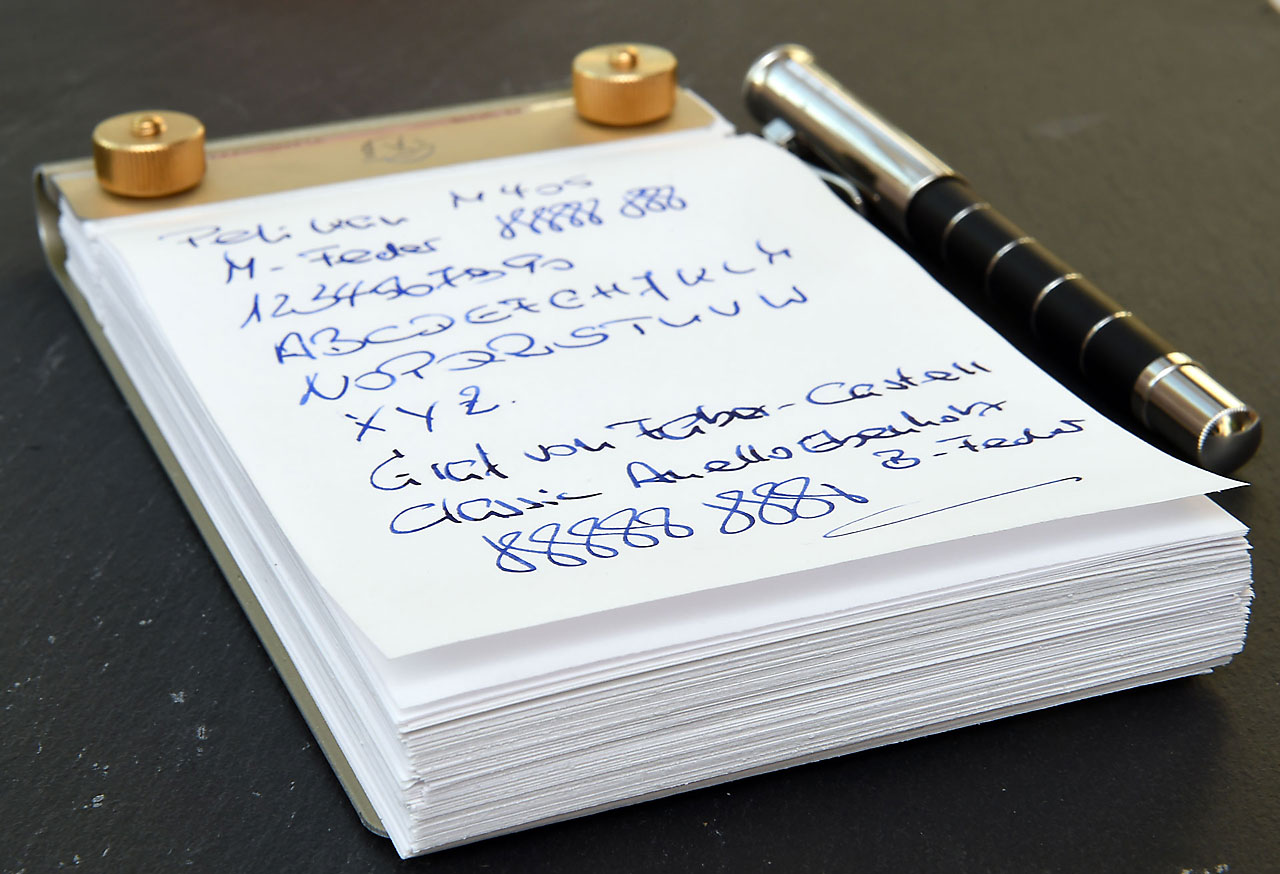 Pelikan M405
M-Feder 88888 888
1234567890
ABCDEFGHIJKLM
NOPQRSTUVW
XYZ.
Graf von Faber-Castell
Classic Anello Ebenholz
B-Feder
88888 8888